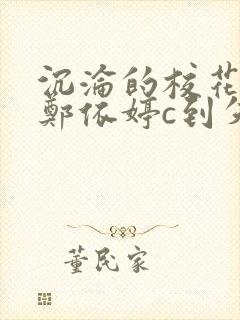 沉淪的校花
鄭依婷c到
董民家